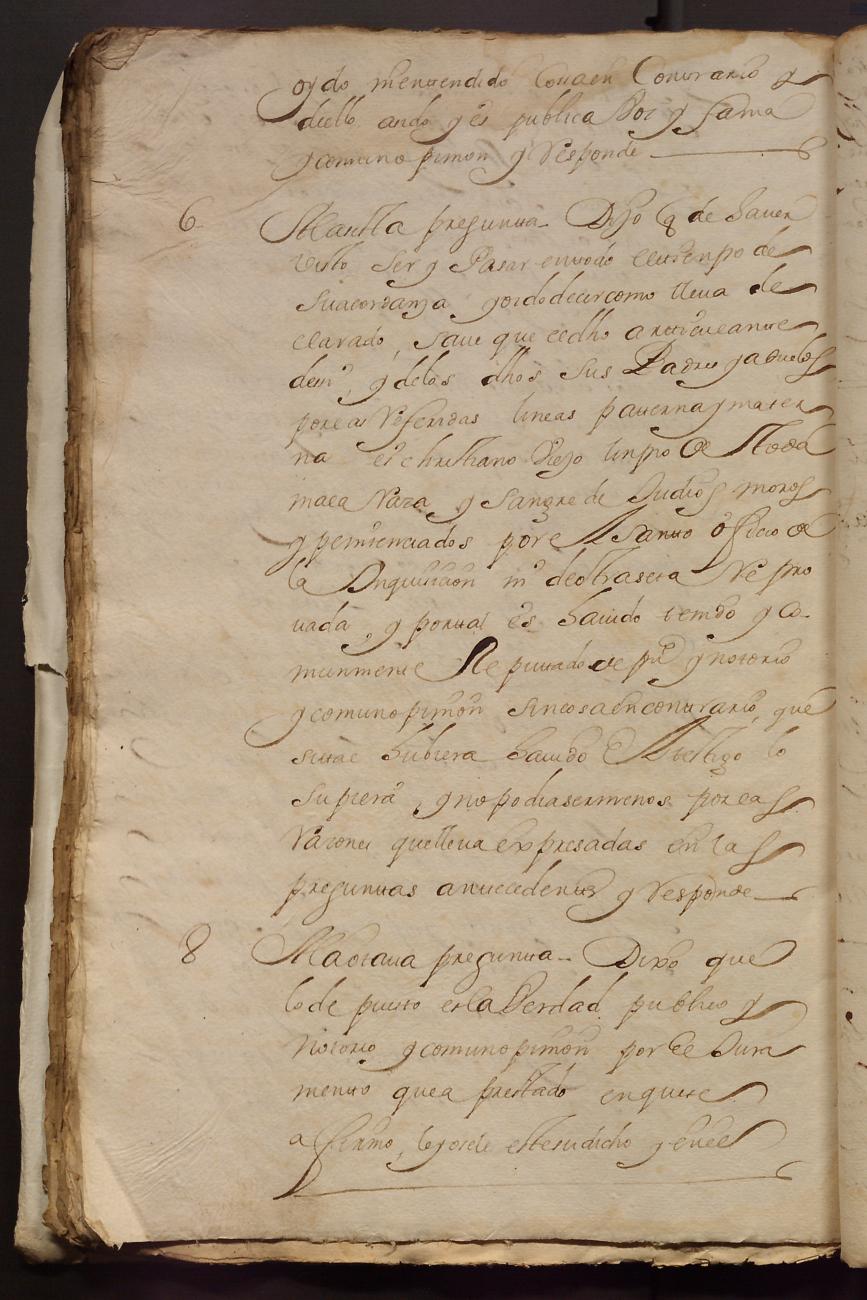 oydo ni entendido cosa en Contrario y
dello ando y es publica Voz y fama
y comun opinion y Responde
6 A la sesta pregunta Dijo q de haver
visto Ser y Pasar en todo el tienpo de
Su acordanza y oido decir como lleva de
clarado, save que el dho articulante
y de los dhos sus Padres y abuelos
por las Referidas lineas paterna y mater
na es christiano Viejo linpio de toda
mala Raza y Sangre de Judios moros
y penitenciados por el Santo oficio de
la Inquisicion ni de otra seta Repro
vada, y por tal es havido tenido y co
munmente Reputado de y notorio
y comun opinion sin cosa en contrario, que
si tal hubiera havido el testigo lo
supiera, y no podia ser menos por las
Razones que lleva expresadas en las
preguntas antecedentes y Responde
8 A la octava pregunta Dixo que
lo de puesto es la Verdad publico y
notorio y comun opinion por el Jura
mento que a prestado en que se
afirmo, leyosele este su dicho y en el